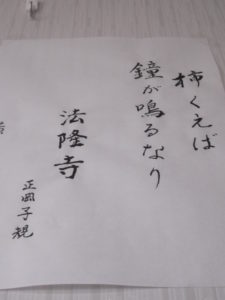 柿くえば
鐘が鳴るなり
法隆寺
正岡子規